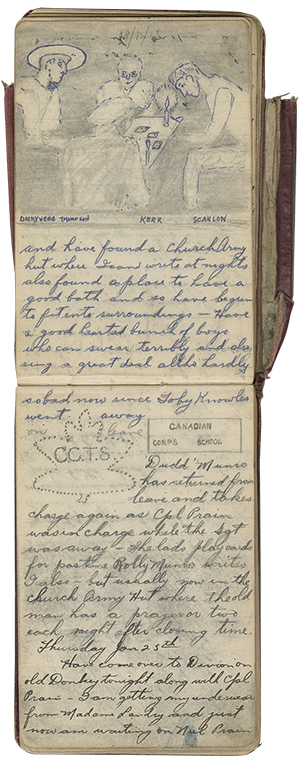 DICKYWEBB THOMPSON KERR SCANLON
and have found a Church Army
hut where I can write at nights
also found a place to have a
good bath and so have begun
to fit into surroundings – Have
a good hearted bunch of boys
who can swear terribly and also
sing a great deal altho hardly
so bad now since Toby Knowles
went away
on leave
C.C.T.S
CANADIAN
CORPS SCHOOL
"Dudd" Munro
has returned from
leave and takes
charge again as Cpl Prain
was in charge while the Sgt
was away – The lads play cards
for pastime Rolly Munro writes
I also – but usually now in the
Church Army Hut where the old
man has a prayer or two
each night after closing time.
Thursday Jan 25th
Have come over to Division on
old Donkey tonight along with Cpl
Prain – I am getting my underwear
from Madame Landry and just
now am waiting on Neil Prain